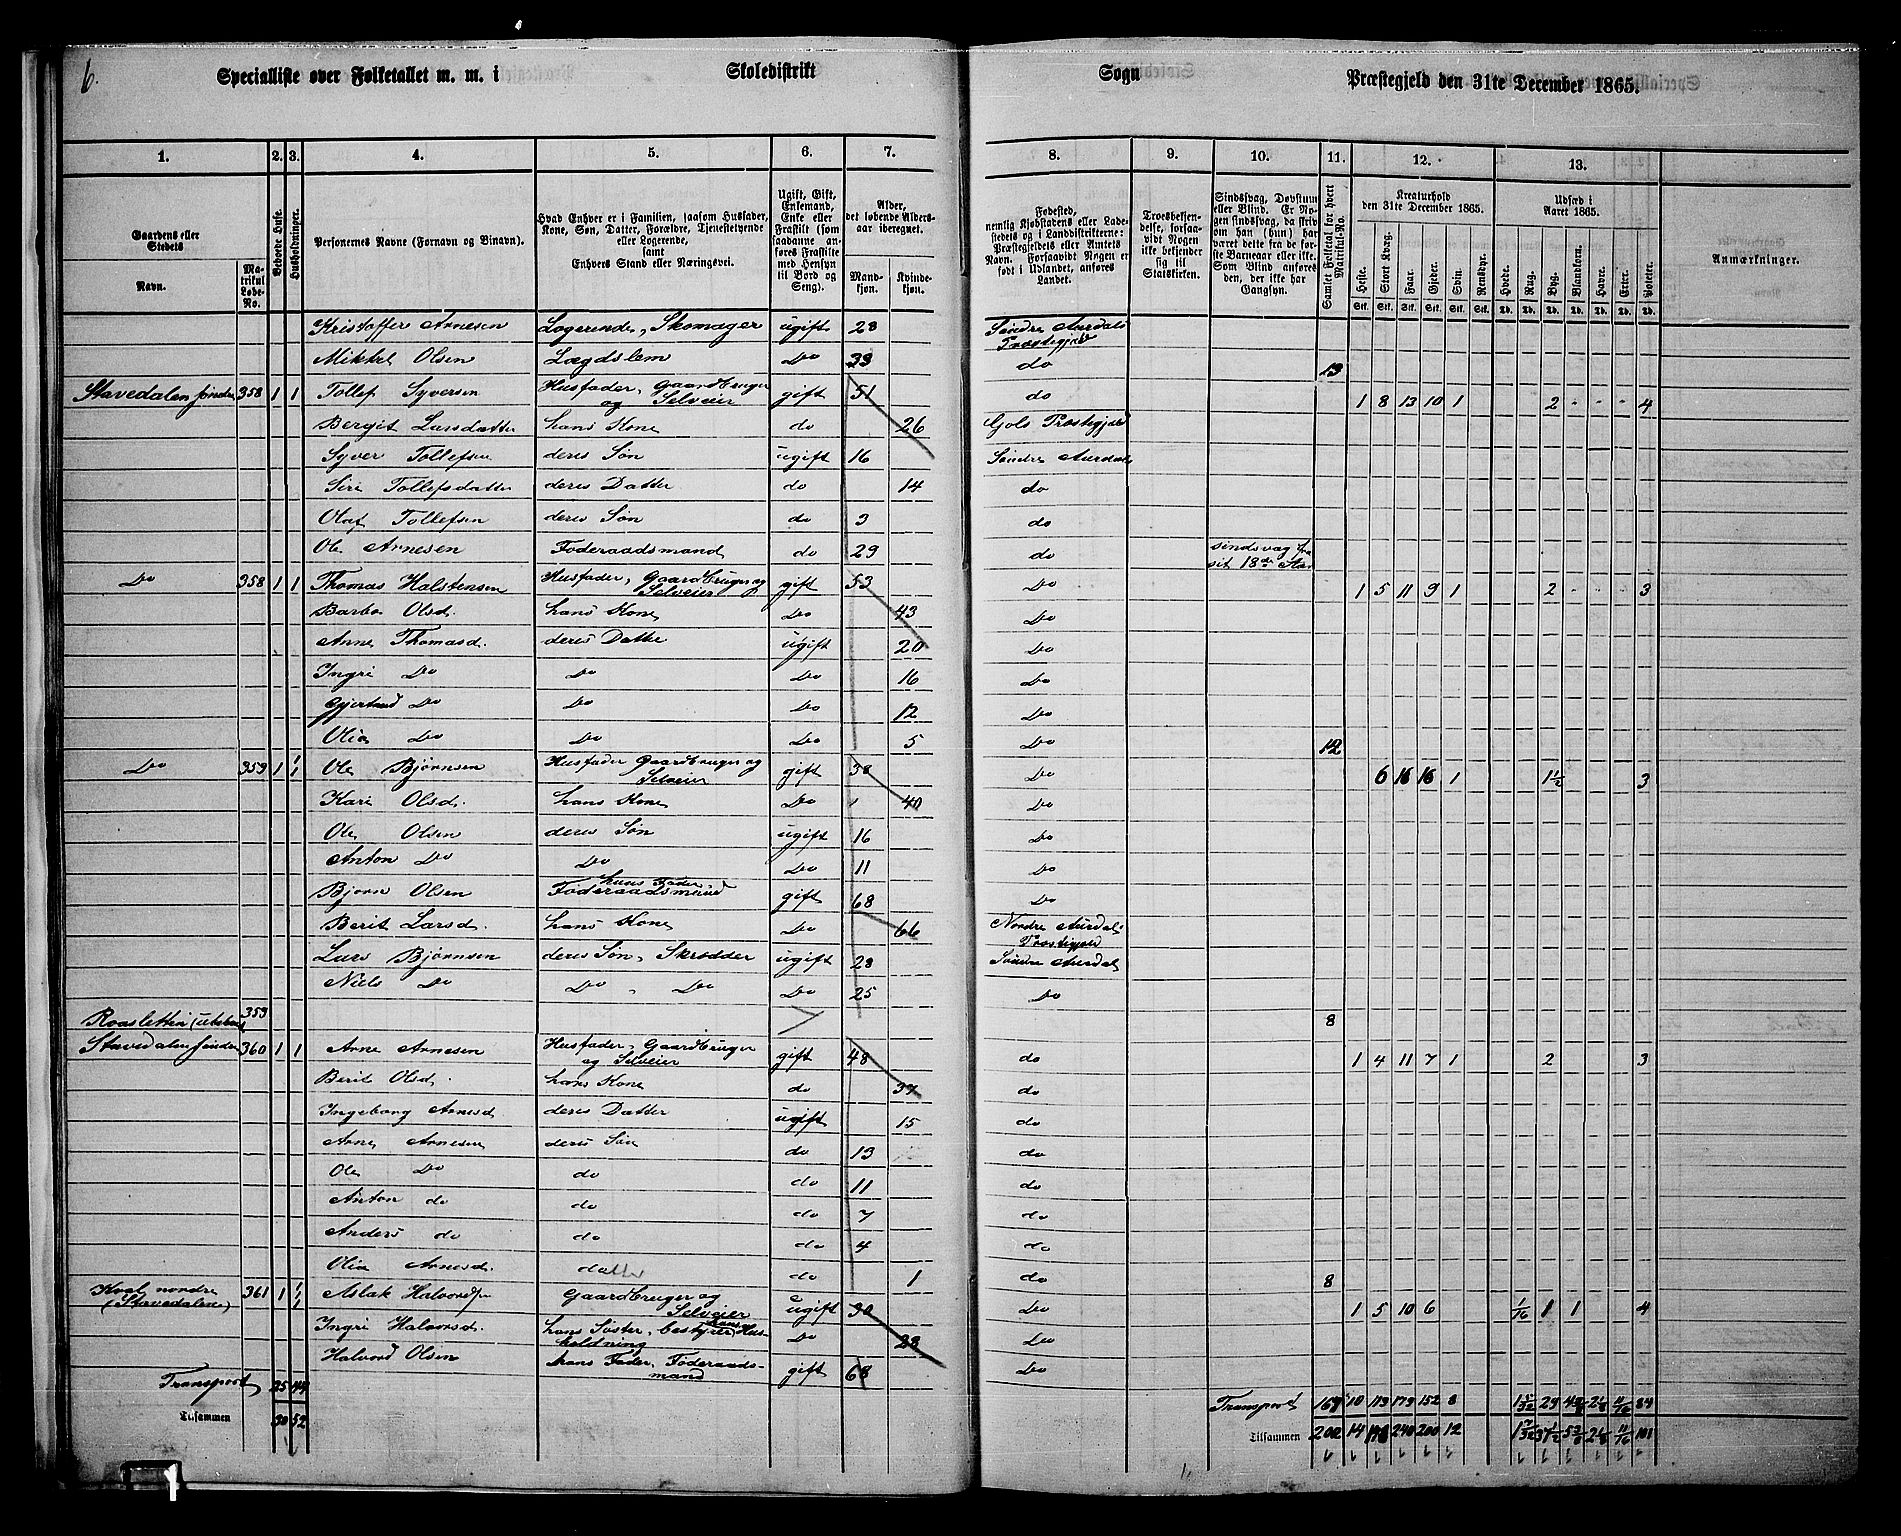 6.
Specialliste over Folketallet m. m. i Skoledistrikt Sogn Præstegjeld den 31te December 1865.
1. 2. 3. 4. 5. 6. 7. 8. 9. 10. 11. 12. 13.
Gaardens eller Stedets
Navn.
Matrikul Løbe-No.
Beboede Huse.
Husholdninger.
Personernes Navne (Fornavn og Binavn).
Hvad Enhver er i Familien, saasom Husfader, Kone, Søn, Datter, Forældre, Tjenestetyende eller Logerende, samt Enhvers Stand eller Næringsvei.
Ugift, Gift, Enkemand, Enke eller Fraskilt (som saadanne anføres Fraskilte med Hensyn til Bord og Seng).
Alder, det løbende Aldersaar iberegnet.
Mandkjøn. Kvindekjøn.
Fødested, nemlig Kjøbstadens eller Ladestedets og i Landdistrikterne: Præstegjeldets eller Amtets Navn. Forsaavidt Nogen er født i Udlandet, anføres Landet.
Troesbekjendelse, forsaavidt Nogen ikke bekjender sig til Statskirken.
Sindssvag, Døvstum eller Blind. Er Nogen sindssvag, da skrives om han (hun) har været dette fra de første Barneaar eller ikke. Som Blind anføres den, der ikke har Gangsyn.
Samlet Folketal for hvert Matrikul-No.
Kreaturhold den 31te December 1865.
Heste. Stort Kvæg. Faar. Gjeder. Svin. Rensdyr.
Udsæd i Aaret 1865.
Hvede. Rug. Byg. Blandkorn. Havre. Erter. Poteter.
Anmærkninger.
Kristoffer Arnesen Logerende, Skomager ugift 28 Søndre Aurdals Præstegjæld
Mikkel Olsen Lægdslem Do 33 do 13
Stavedalen søndre 358 1 1 Tollef Syversen Husfader, Gaardbruger og Selveier gift 51 do 1 8 13 10 1 2 - - - 4
Bergit Larsdatter hans Kone do 26 Gols Præstegjæld
Syver Tollefsen deres Søn ugift 16 Søndre Aurdal
Siri Tollefsdatter deres Datter do 14 do
Olaf Tollefsen deres Søn do 3 do
Ole Arnesen Foderaadsmand do 29 do sindsvag fra sit 18de Aar
Do 358 1 1 Thomas Halstensen Husfader, Gaardbruger og Selveier gift 53 Do 1 5 11 9 1 2 - - - 3
Barbo Olsd. hans Kone Do 43 Do
Anne Thomasd. deres Datter ugift 20 Do
Ingri Do Do Do 16 Do
Gjertrud Do Do Do 12 Do
Olia Do Do Do 5 Do 12
Do 359 1 1/1 Ole Bjørnsen Husfader Gaardbruger og Selveier gift 38 Do 6 16 16 1 1½ 3
Kari Olsd. hans Kone Do 40 Do
Ole Olsen deres Søn ugift 16 Do
Anton Do Do Do 11 Do
Bjørn Olsen hans Fader Foderaadsmand gift 68 Do
Berit Larsd. hans Kone Do 66 Nordre Aurdals Præstegjæld
Lars Bjørnsen deres Søn, Skrædder ugift 28 Søndre Aurdal
Niels Do Do - Do Do 25 Do
Roasletten (ubeboet) 359 8
Stavedalen søndre 360 1 1 Arne Arnesen Husfader, Gaardbruger og Selveier gift 48 do 1 4 11 7 1 2 3
Berit Olsd. hans Kone do 37 do
Ingeborg Arnesd deres Datter ugift 15 do
Arne Arnesen deres Søn do 13 do
Ole Do do do 11 do
Anton do do do 7 do
Anders do do do 4 do
Olia Arnesd. datter do 1 do 8
Kval nordre (Stavedalen) 361 1 1/1 Aslak Halvordsen Gaardbruger og Selveier ugift 30 Do 1 5 10 6 1/16 1 1 4
Ingri Halvorsd. hans Søster, bestyrer hans Husholdning Do 28 Do
Halvord Olsen hans Fader, Foderaadsmand gift 68 Do
Transport 25 44 Transport 169 10 179 152 8 29 84
Tilsammen 30 52 Tilsammen 202 14 240 200 12 37½ 101